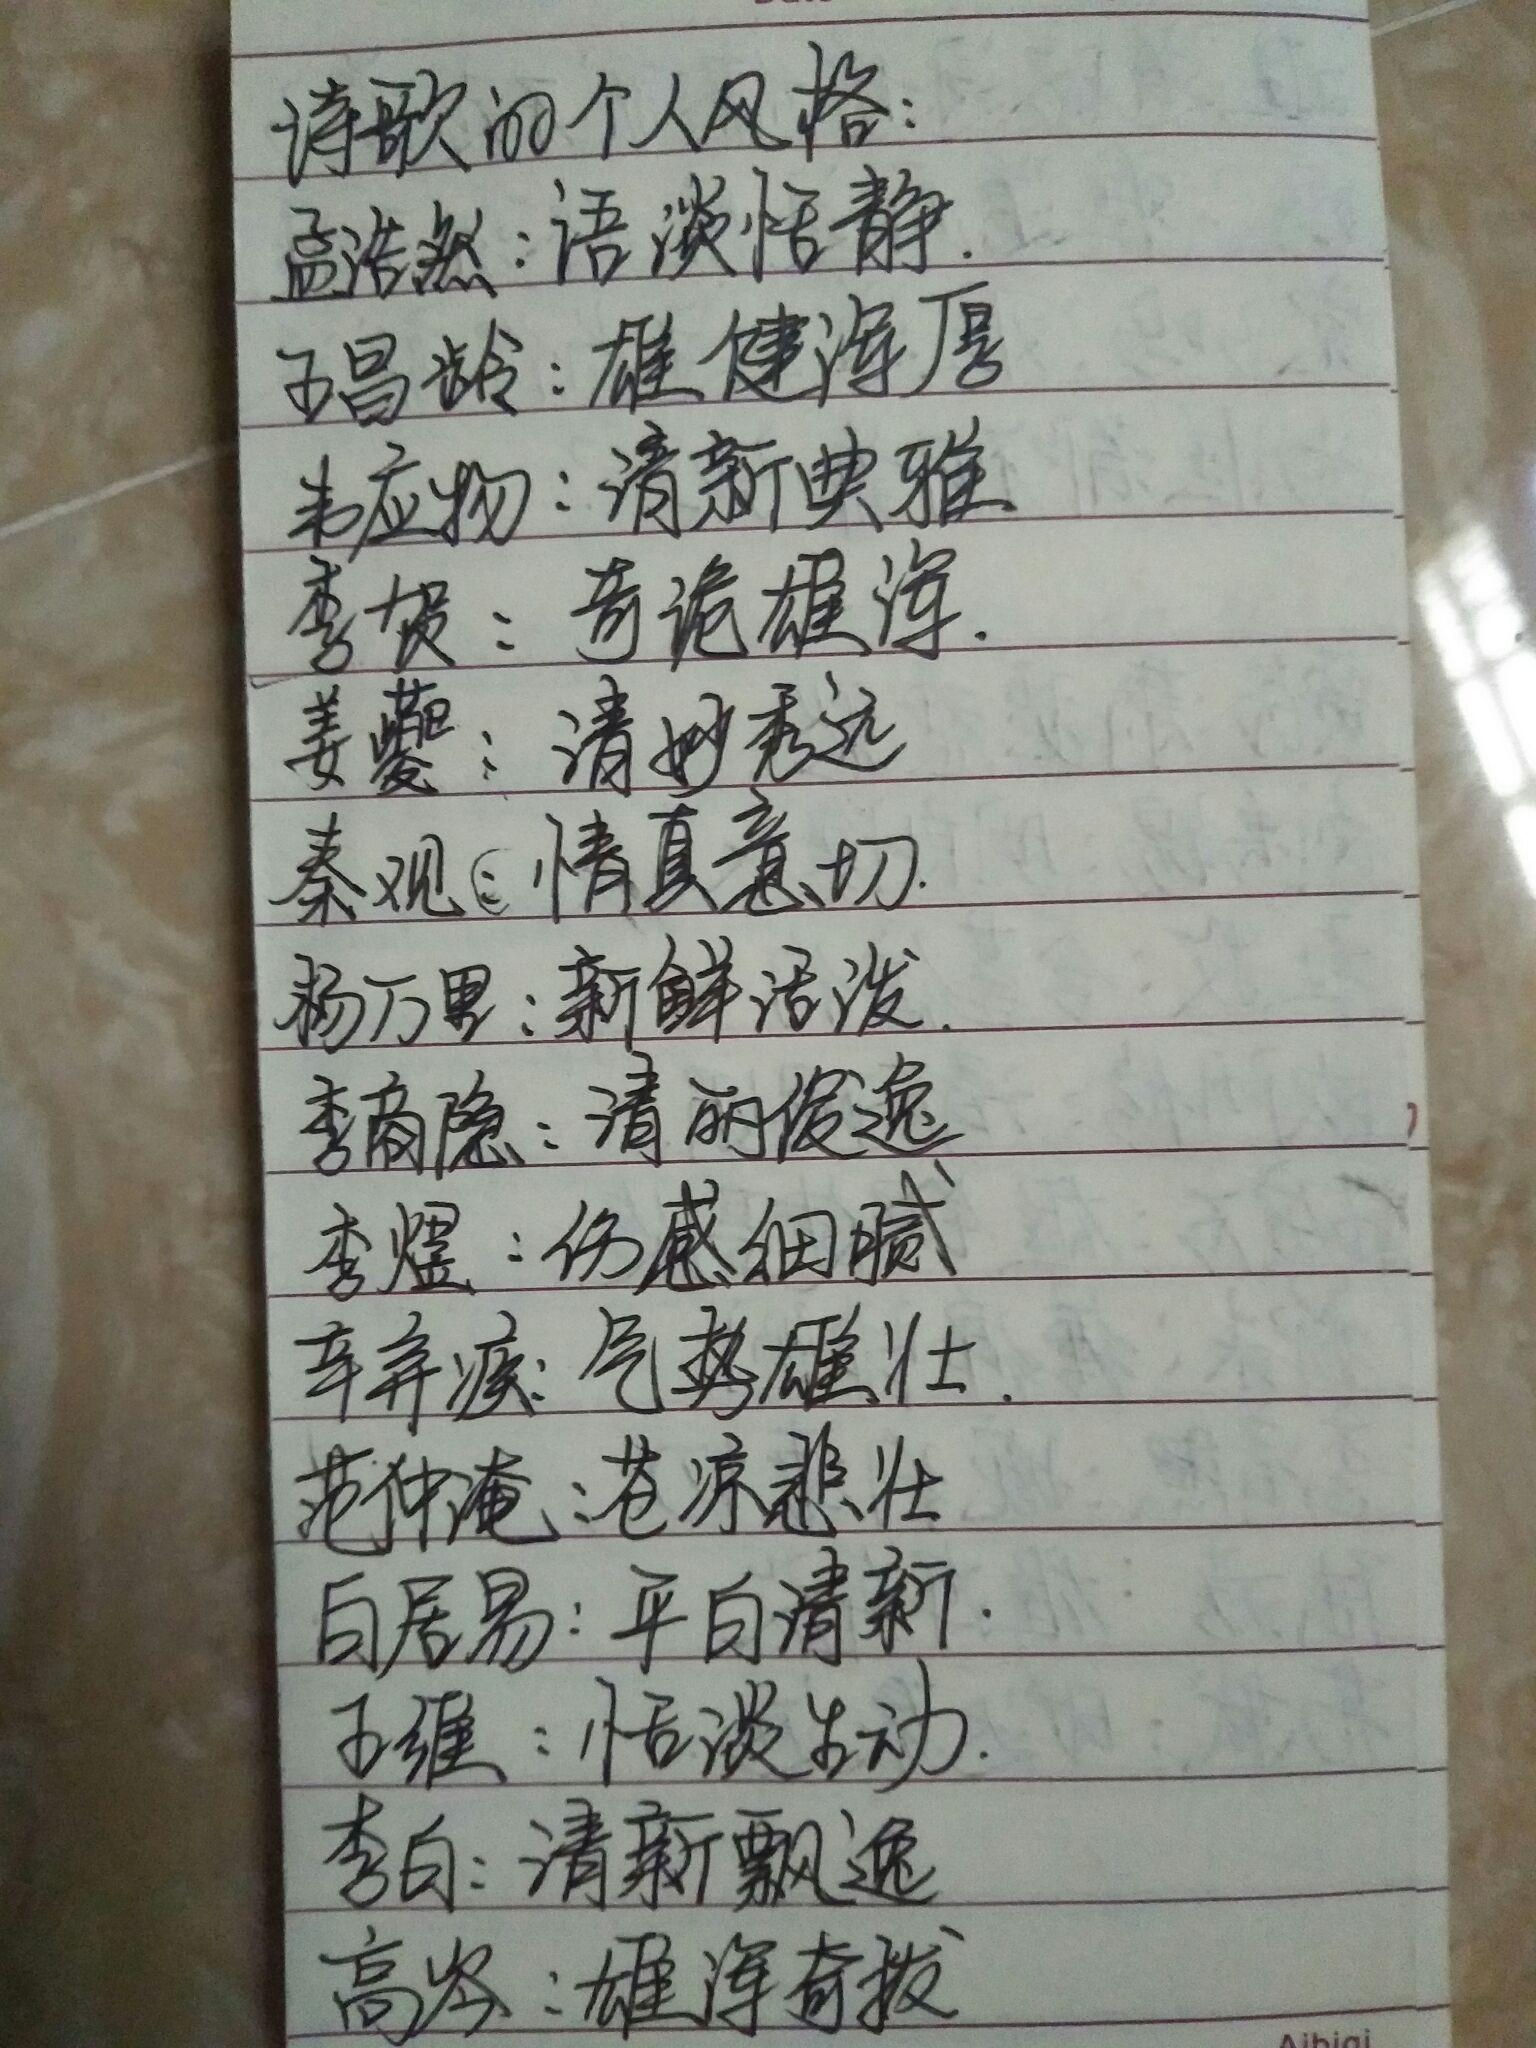 诗歌的个人风格:
孟浩然:语淡恬静.
王昌龄:雄健浑厚
韦应物:清新典雅
李贺:奇诡雄浑.
姜夔:清妙秀远
秦观:情真意切.
杨万里:新鲜活泼.
李商隐:清丽俊逸
李煜:伤感细腻
辛弃疾:气势雄壮.
范仲淹:苍凉悲壮
白居易:平白清新.
王维:恬淡生动.
李白:清新飘逸
高岑:雄浑奇拔
Aibiqi